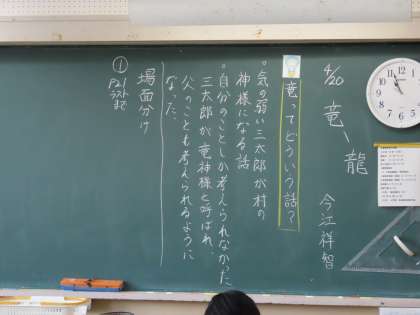 4/20 竜―龍 今江祥智
竜ってどういう話?
・気の弱い三太郎が村の
神様になる話
・自分のことしか考えられなかった
三太郎が竜神様と呼ばれ、
父のことも考えられるように
なった。
場面分け
①
P21
ラスト
まで